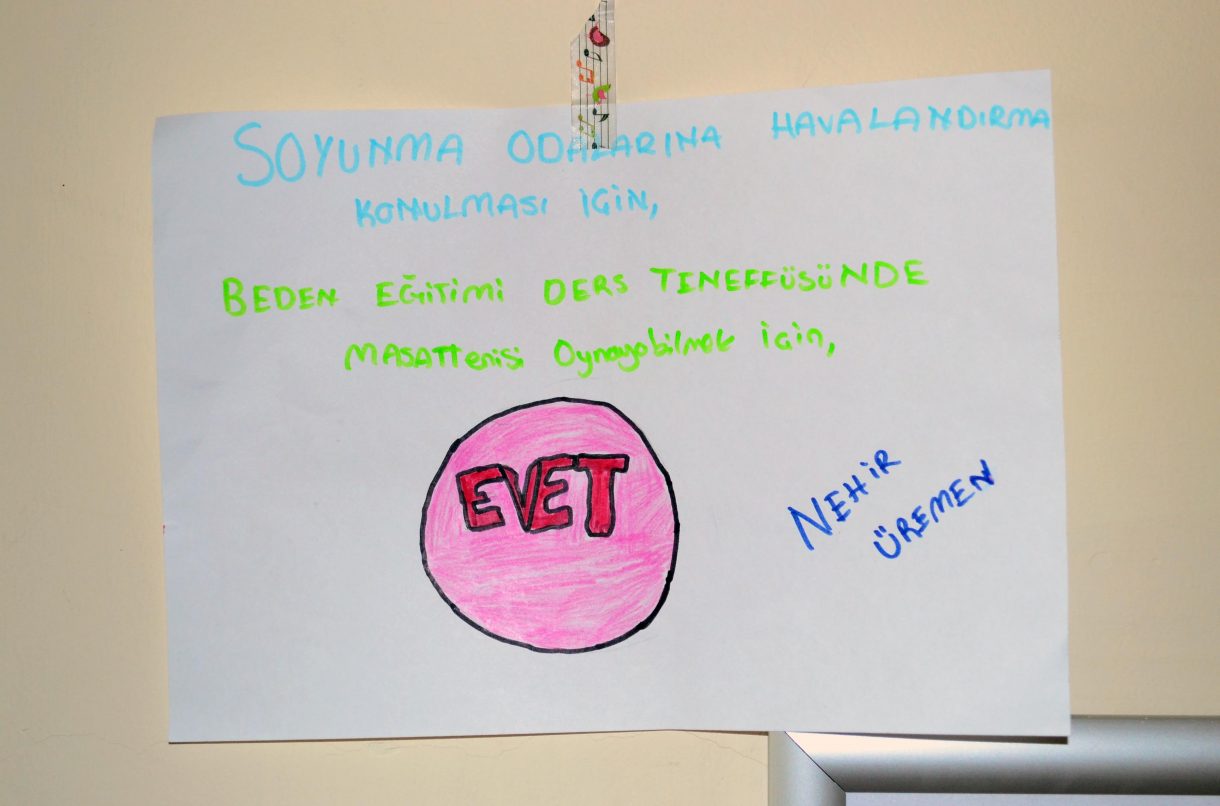 SOYUNMA ODALARINA HAVALANDIRMA
KONULMASI İÇİN,
BEDEN EĞİTİMİ DERS TENEFFÜSÜNDE
MASATTenisi Oynayabilmek İçin,
EVET
NEHİR
ÜREMEN